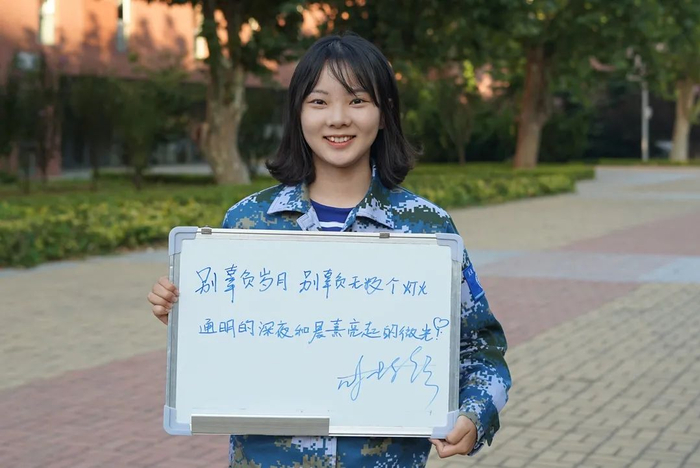 别辜负岁月 别辜负无数个灯火
通明的深夜和晨熹亮起的微光!